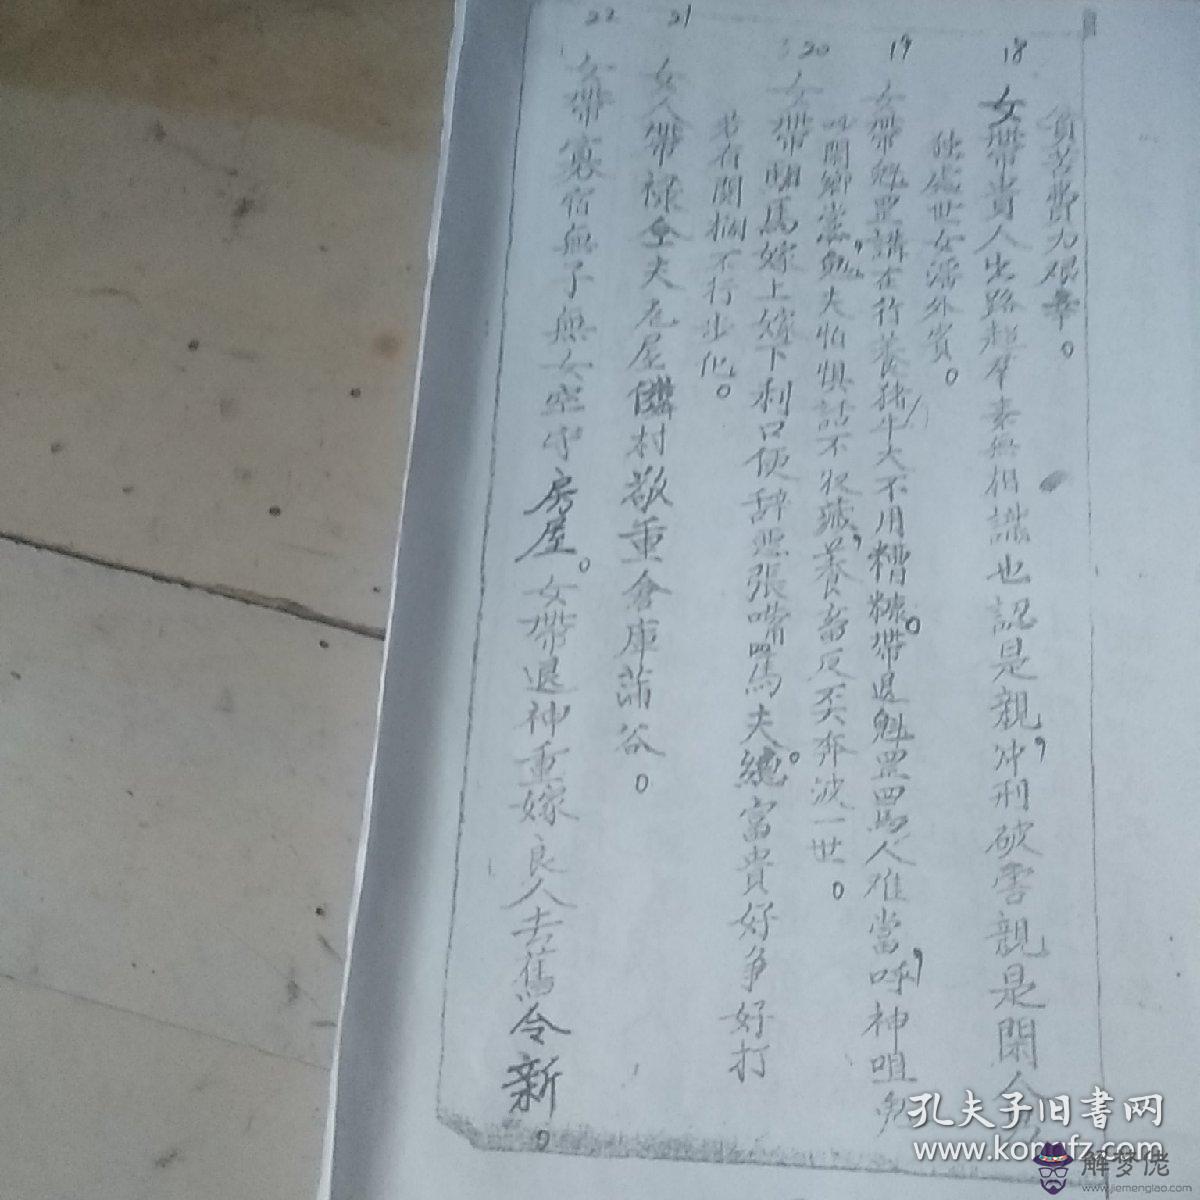 負苦費力艰辛。
18 女帶貴人出路超群素無相識也認是親，冲刑破害親是閑人
独處世女濡外賓。
19 女帶魁罡講在行養猪牛大不用糟糠。帶退魁罡罵人难當，呼神咀鬼
吵鬧鄉党，夫怕惧話不收藏，養畜反奔波一世。
20 女帶馬嫁上嫁下利口便辞惡張嘴罵夫。總富貴好争好打
若有関搁不行出他。
21 女人帶禄全夫旺屋隣村敬重倉庫蒲谷。
22 女帶寡宿無子無女空守房屋。女帶退神重嫁良人去舊令新。
孔夫子旧書网
www.kongfz.com
解梦佬
www.jiemenglao.com